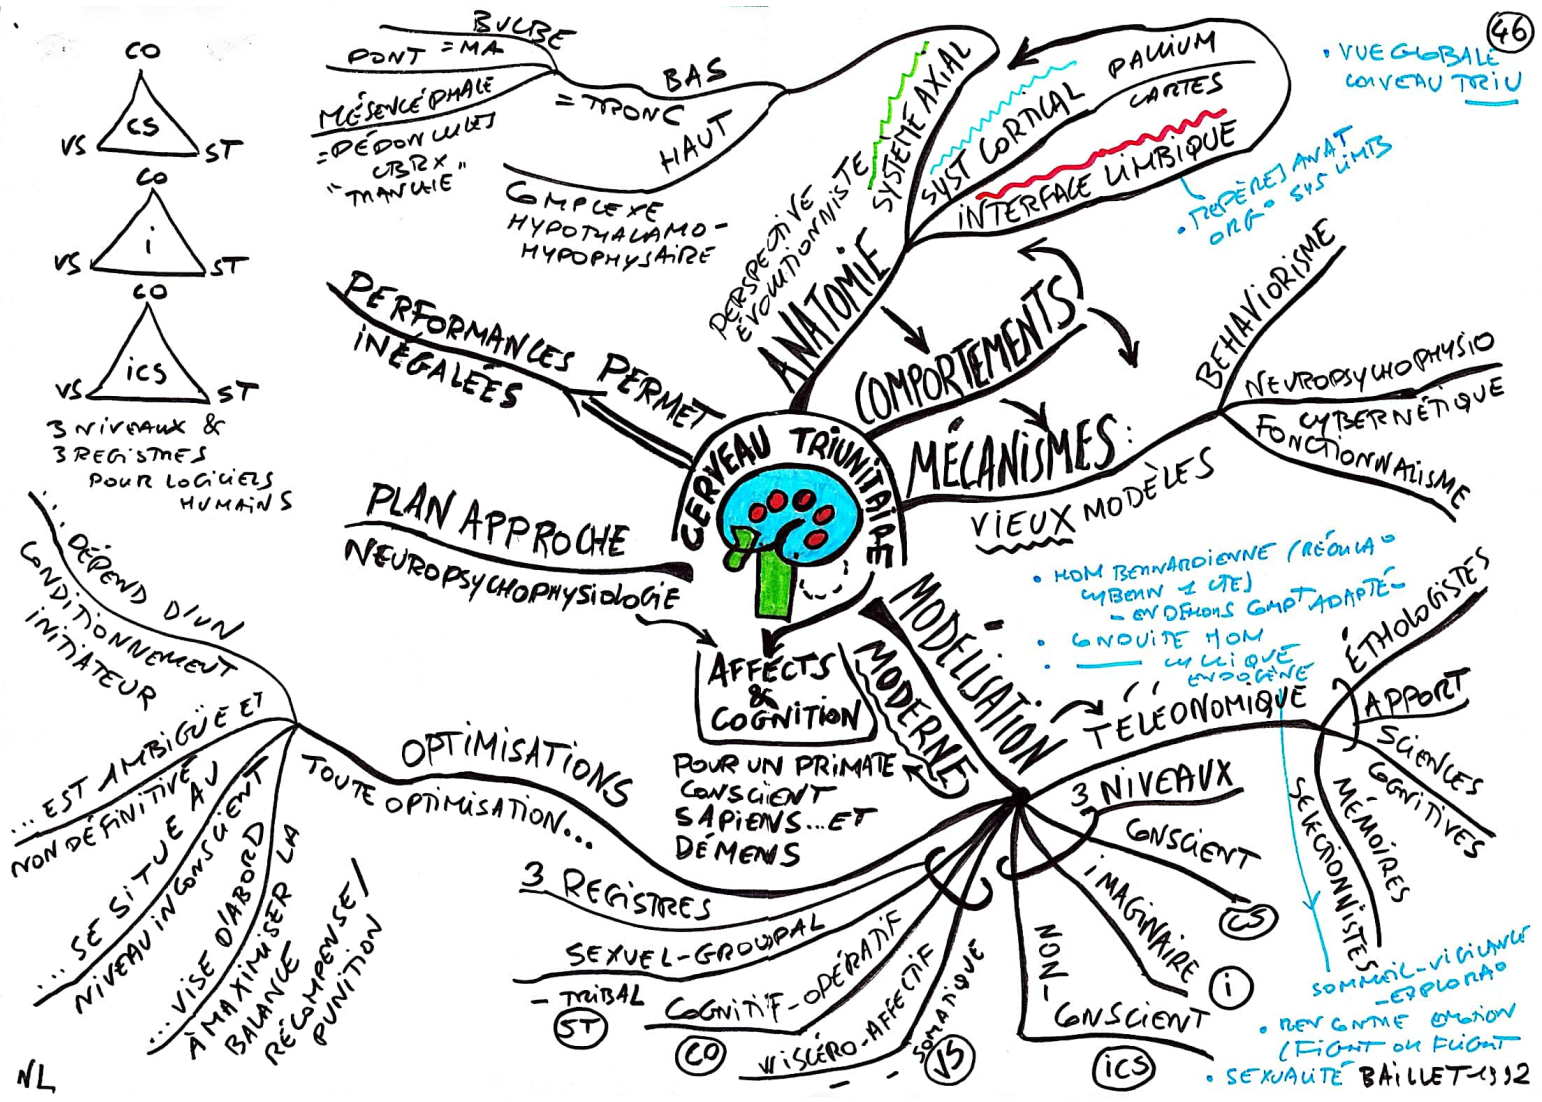 46
CO
CS
VS
ST
CO
i
VS
ST
CO
iCS
VS
ST
3 NIVEAUX &
3 REGISTRES
POUR LOGICIELS
HUMAINS
BULBE
PONT = MA
MÉSENCÉPHALE
= PÉDONCULES
CBRX
"TRANCHE"
BAS
= TRONC
HAUT
COMPLEXE
HYPOTHALAMO-
HYPOPHYSAIRE
PERSPECTIVE
ÉVOLUTIONNISTE
SYSTÈME AXIAL
SYST CORTICAL
PALLIUM
CARTES
INTERFACE LIMBIQUE
ANATOMIE
• VUE GLOBALE
CERVEAU TRIU
• REPÈRES ANAT
ORG° SYS LIMB
COMPORTEMENTS
MÉCANISMES:
VIEUX MODÈLES
BEHAVIORISME
NEUROPSYCHOPHYSIO
CYBERNÉTIQUE
FONCTIONNALISME
PERFORMANCES PERMET
INÉGALÉES
CERVEAU TRIUNITAIRE
PLAN APPROCHE
NEUROPSYCHOPHYSIOLOGIE
AFFECTS
&
COGNITION
POUR UN PRIMATE
CONSCIENT
SAPIENS... ET
DÉMENS
MODÉLISATION
MODERNE
• HOM BERNARDIENNE (RÉGULA°
CYBERN 1 CTE)
- EN DEHORS COMPT ADAPTÉ-
• CONDUITE HOM
• —— CYCLIQUE
ENDOGÈNE
TÉLÉONOMIQUE
ÉTHOLOGISTES
APPORT
SCIENCES
COGNITIVES
MÉMOIRES
SELECTIONNISTES
3 NIVEAUX
CONSCIENT
CS
IMAGINAIRE
i
NON-
CONSCIENT
iCS
SOMMEIL-VIGILANCE
-EXPLORA°
• RENCONTRE EMOTION
(FIGHT OR FLIGHT
• SEXUALITÉ
BAILLET 1992
OPTIMISATIONS
TOUTE OPTIMISATION...
...DÉPEND D'UN
CONDITIONNEMENT
INITIATEUR
...EST AMBIGÜE ET
NON DÉFINITIVE
...SE SITUE AU
NIVEAU INCONSCIENT
...VISE D'ABORD
À MAXIMISER LA
BALANCE
RÉCOMPENSE/
PUNITION
3 REGISTRES
SEXUEL-GROUPAL
- TRIBAL
ST
COGNITIF-OPÉRATIF
CO
VISCÉRO-AFFECTIF
- SOMATIQUE
VS
NL